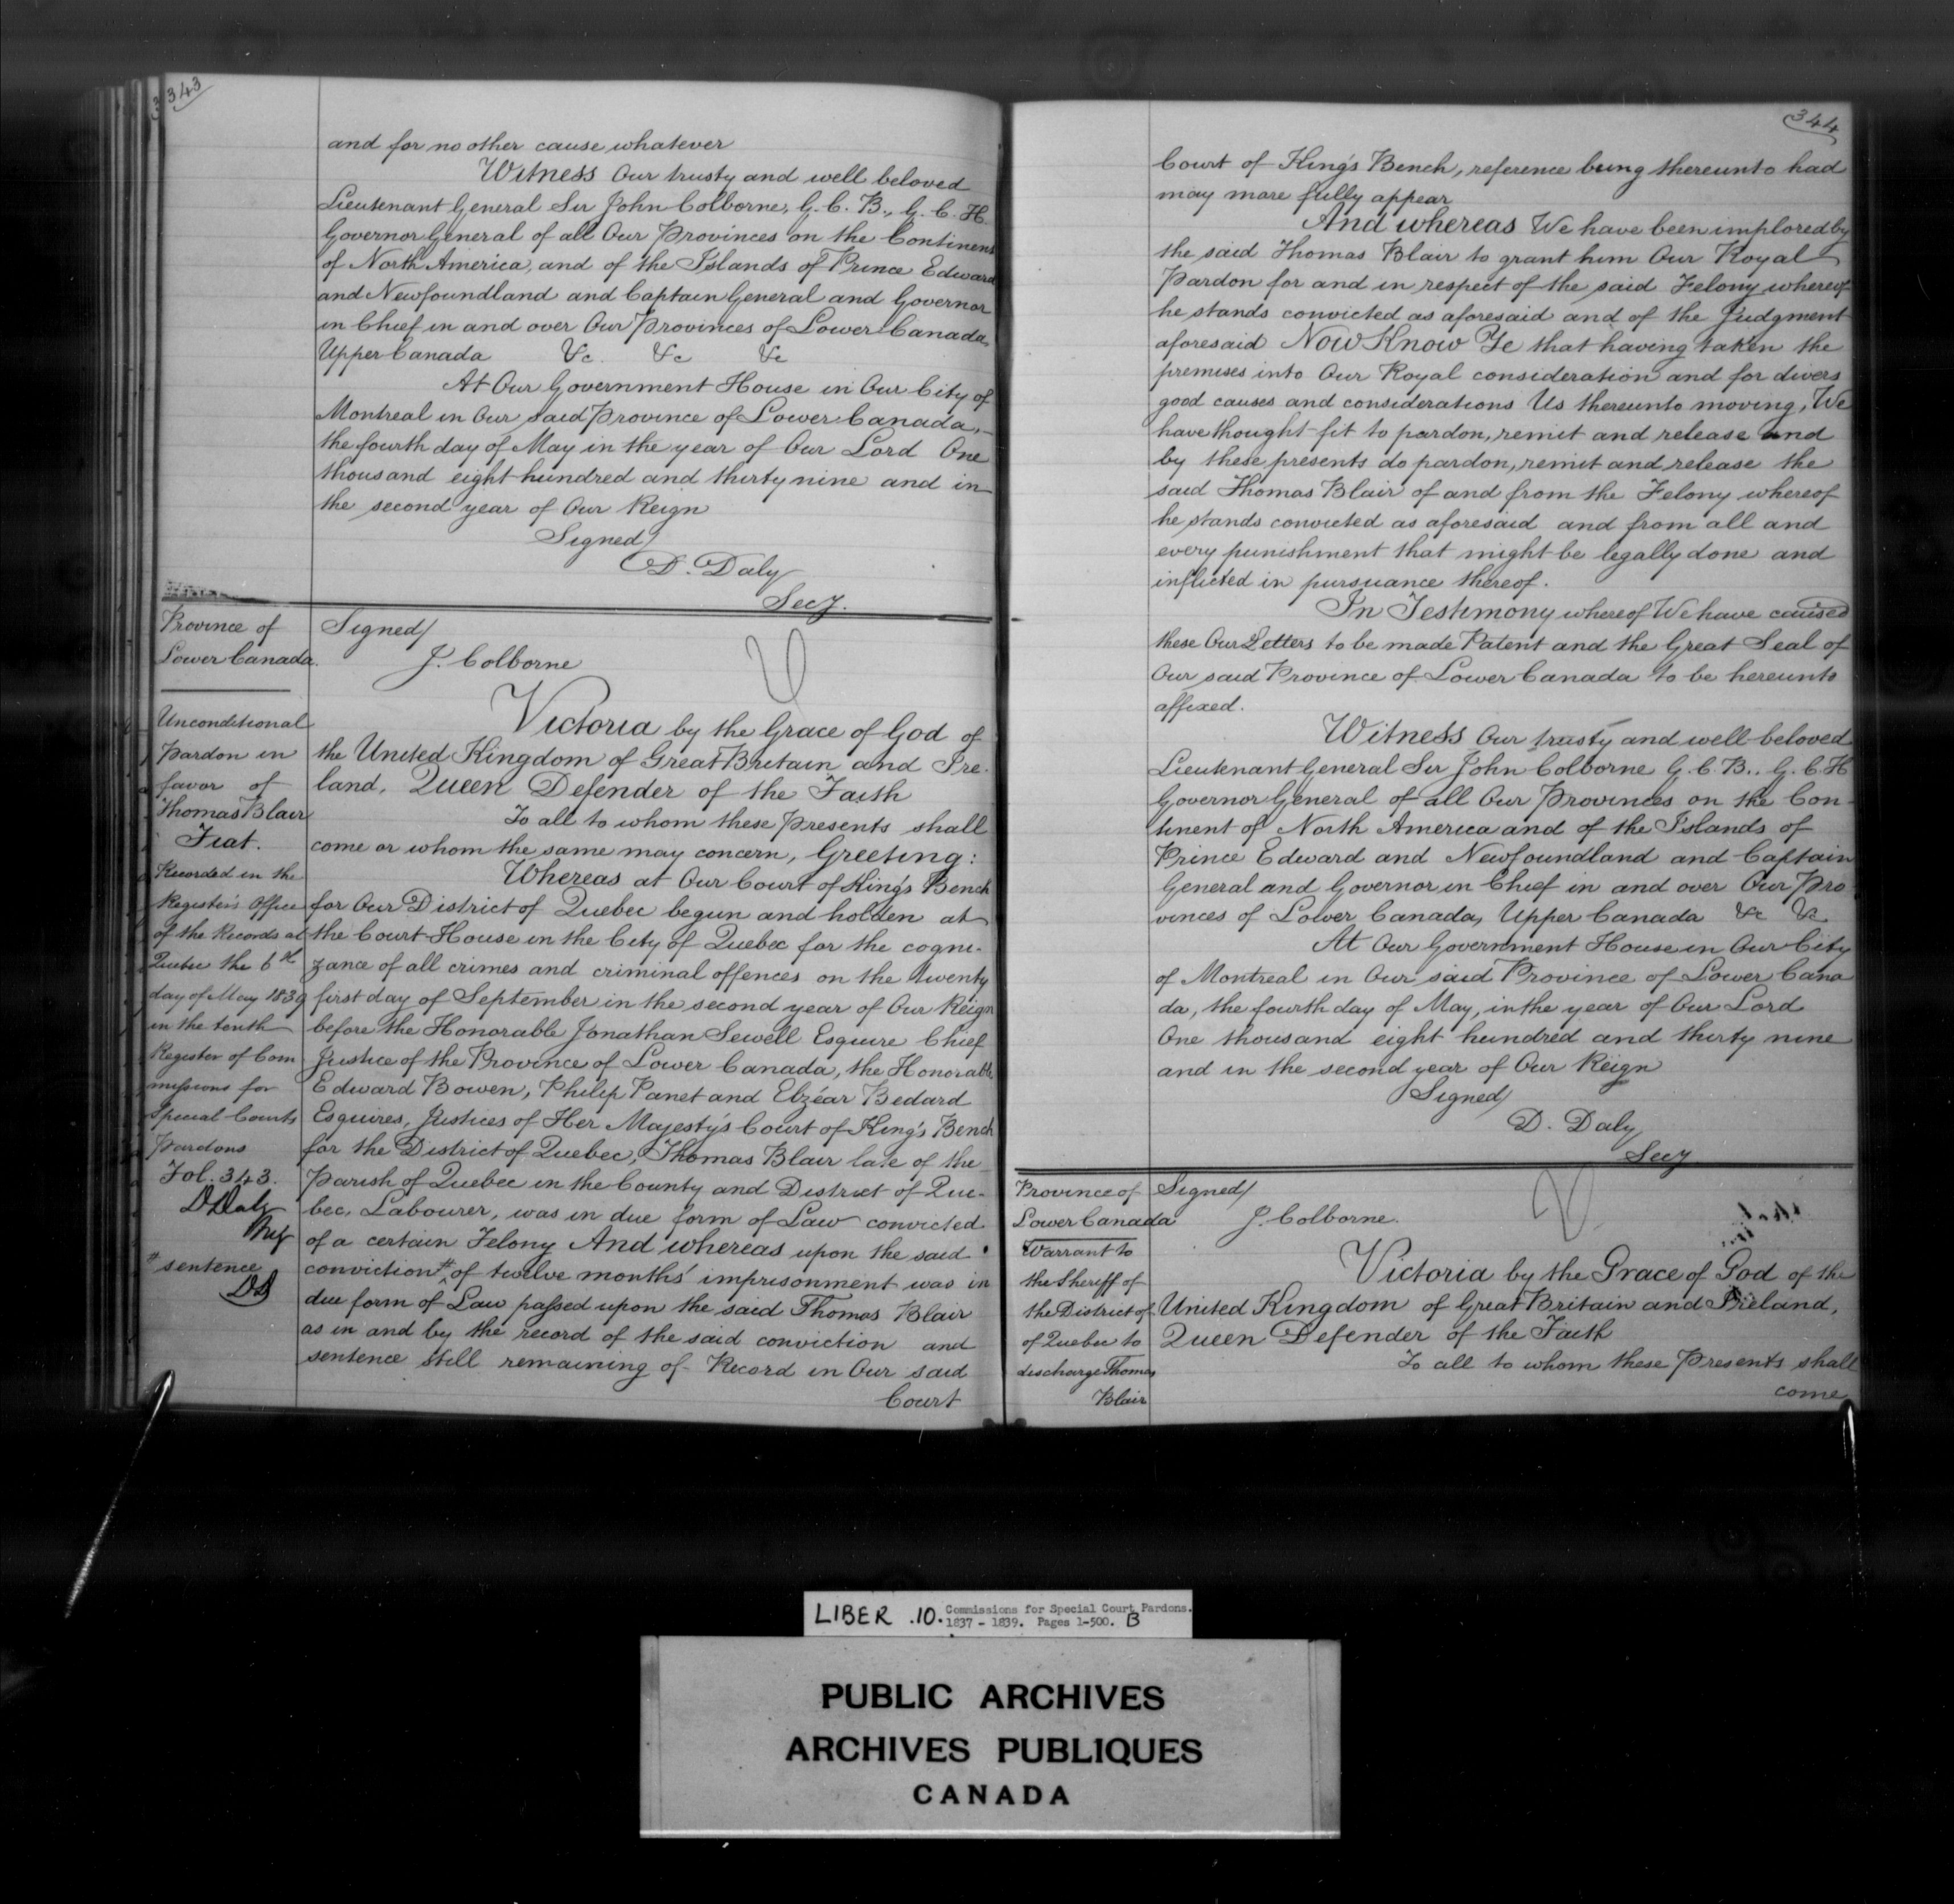 343
and for no other cause whatever
Witness Our trusty and well beloved
Lieutenant General Sir John Colborne, G. C. B., G. C. H.
Governor General of all Our Provinces on the Continent
of North America, and of the Islands of Prince Edward
and Newfoundland and Captain General and Governor
in Chief in and over Our Provinces of Lower Canada,
Upper Canada &c. &c &c
At Our Government House in Our City of
Montreal in Our said Province of Lower Canada,
the fourth day of May in the year of Our Lord One
thousand eight hundred and thirty nine and in
the second year of Our Reign
Signed/
D. Daly
Secy.
Province of
Lower Canada.
Unconditional
Pardon in
favor of
Thomas Blair
Fiat.
Recorded in the
Register's Office
of the Records at
Quebec the 6th
day of May 1839
in the tenth
Register of Com
missions for
Special Courts
Pardons
Fol. 343.
D Daly
Reg
# sentence
DD
Signed/
J. Colborne
Victoria by the Grace of God of
the United Kingdom of Great Britain and Ire-
land, Queen Defender of the Faith
To all to whom these Presents shall
come or whom the same may concern, Greeting:
Whereas at Our Court of King's Bench
for Our District of Quebec begun and holden at
the Court House in the City of Quebec for the cogni-
zance of all crimes and criminal offences on the twenty
first day of September in the second year of Our Reign
before the Honorable Jonathan Sewell Esquire Chief
Justice of the Province of Lower Canada, the Honorable
Edward Bowen, Philip Panet and Elzéar Bedard
Esquires, Justices of Her Majesty's Court of King's Bench
for the District of Quebec, Thomas Blair late of the
Parish of Quebec in the County and District of Que-
bec, Labourer, was in due form of Law convicted
of a certain Felony And whereas upon the said
conviction # of twelve months' imprisonment was in
due form of Law passed upon the said Thomas Blair
as in and by the record of the said conviction and
sentence still remaining of Record in Our said
Court
344
Court of King's Bench, reference being thereunto had
may more fully appear
And whereas We have been implored by
the said Thomas Blair to grant him Our Royal
Pardon for and in respect of the said Felony whereof
he stands convicted as aforesaid and of the Judgment
aforesaid Now Know Ye that having taken the
premises into Our Royal consideration and for divers
good causes and considerations Us thereunto moving, We
have thought fit to pardon, remit and release and
by these presents do pardon, remit and release the
said Thomas Blair of and from the Felony whereof
he stands convicted as aforesaid and from all and
every punishment that might be legally done and
inflicted in pursuance thereof.
In Testimony whereof We have caused
these Our Letters to be made Patent and the Great Seal of
Our said Province of Lower Canada to be hereunto
affixed.
Witness Our trusty and well beloved
Lieutenant General Sir John Colborne G. C. B., G. C. H
Governor General of all Our Provinces on the Con-
tinent of North America and of the Islands of
Prince Edward and Newfoundland and Captain
General and Governor in Chief in and over Our Pro
vinces of Lower Canada, Upper Canada &c &c
At Our Government House in Our City
of Montreal in Our said Province of Lower Cana
da, the fourth day of May, in the year of Our Lord
One thousand eight hundred and thirty nine
and in the second year of Our Reign
Signed/
D. Daly
Secy
Province of
Lower Canada
Warrant to
the Sheriff of
the District of
of Quebec to
discharge Thomas
Blair
Signed/
J. Colborne.
Victoria by the Grace of God of the
United Kingdom of Great Britain and Ireland,
Queen Defender of the Faith
To all to whom these Presents shall
come
LIBER .10. Commissions for Special Court Pardons.
1837 - 1839. Pages 1-500. B
PUBLIC ARCHIVES
ARCHIVES PUBLIQUES
CANADA